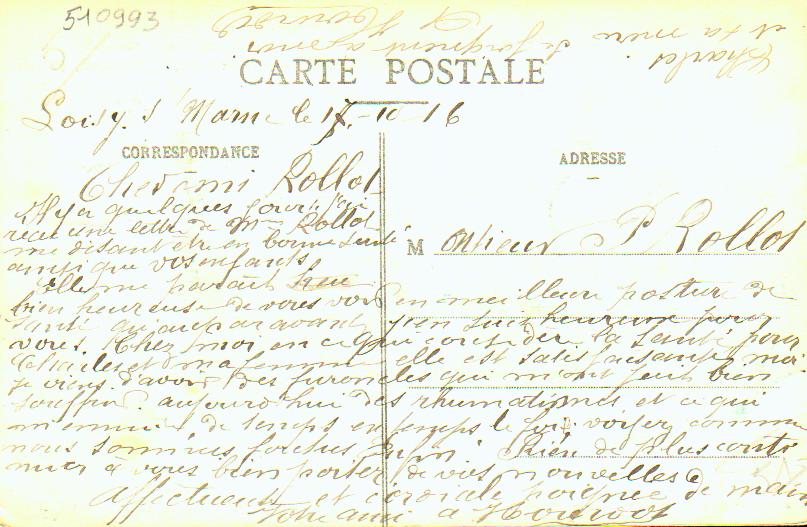 510993
Charles et sa mère se joignent à moi
CARTE POSTALE
Loisy s/ Marne le 17-10-16
CORRESPONDANCE
ADRESSE
Cher ami Rollot
Il y a quelques jours j'ai
reçu une lettre de Mme Rollot
me disant être en bonne santé
ainsi que vos enfants
Monsieur P Rollot
Elle me parait
bien heureuse de vous voir en meilleur posture de
santé qu'auparavant j'en suis heureux pour
vous. Chez moi en ce que concerde la santé pour
Charles et ma femme elle est satisfaisante moi
je viens d'avoir des furoncles qui m'ont fait bien
souffrir aujourd'hui des rhumatismes et ce qui
m'ennuie de temps en temps le voyez comme
nous sommes Rien de plus conti
nuer à vous bien porter de vos nouvelles
Affectueuse et cordiale poignée de main
Votre ami